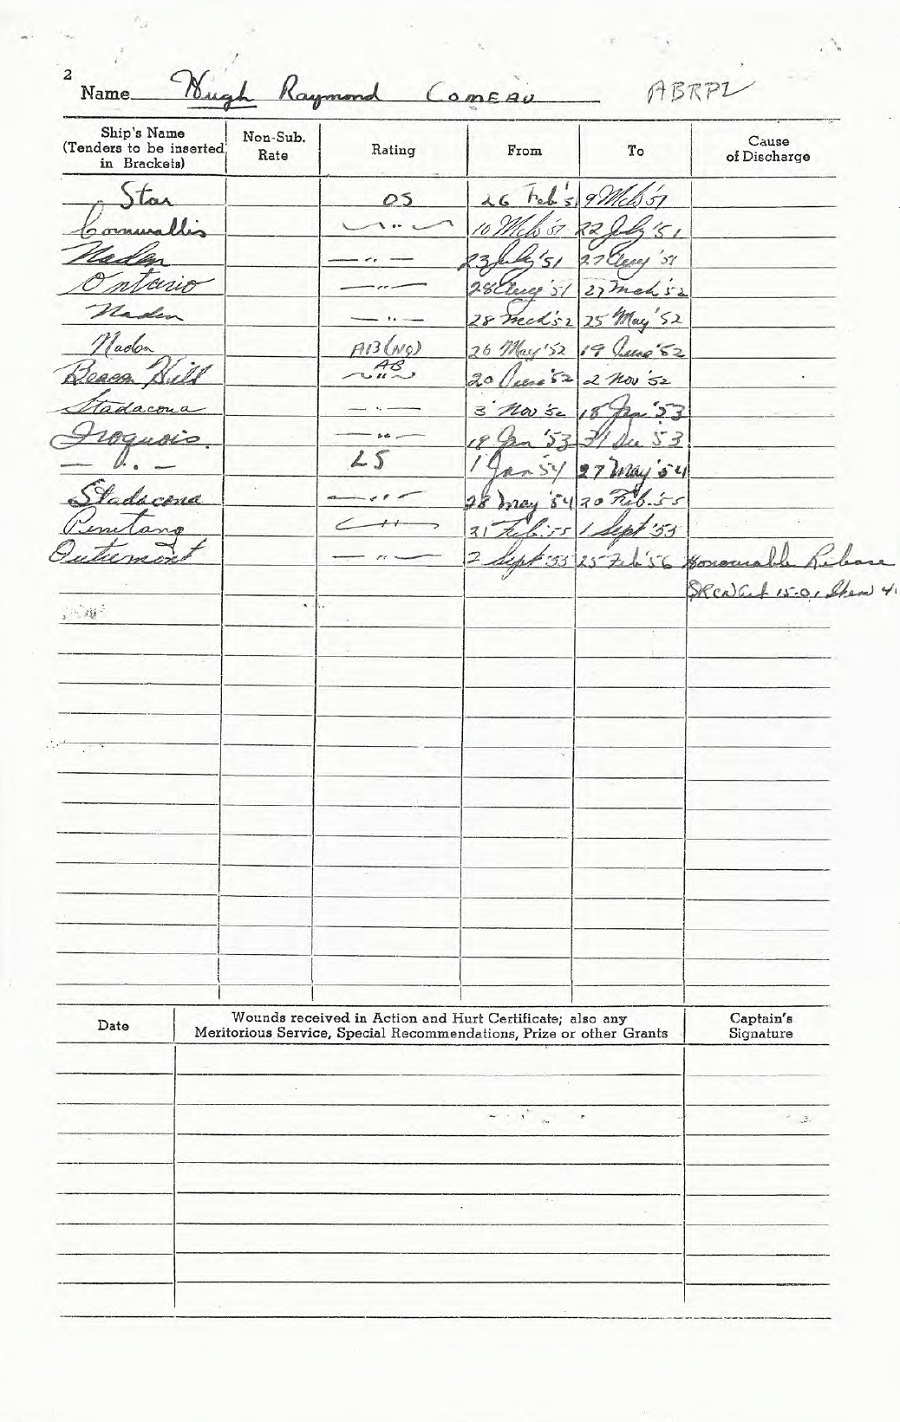 2
Name Hugh Raymond COMEAU ABRPL
Ship's Name (Tenders to be inserted in Brackets) Non-Sub. Rate Rating From To Cause of Discharge
Star OS 26 Feb '51 9 Mch '51
Cornwallis — " — 10 Mch '51 22 July '51
Naden — " — 23 July '51 27 Aug '51
Ontario — " — 28 Aug '51 27 Mch '52
Naden — " — 28 Mch '52 25 May '52
Naden AB(NQ) 26 May '52 19 June '52
Beacon Hill AB — " — 20 June '52 2 Nov '52
Stadacona — " — 3 Nov '52 18 Jan '53
Iroquois. — " — 19 Jan '53 31 Dec '53
— " — LS 1 Jan '54 27 May '54
Stadacona — " — 28 May '54 20 Feb. '55
Penetang — " — 21 Feb. '55 1 Sept '55
Outremont — " — 2 Sept '55 25 Feb '56 Honourable Release
QRCN Art 15-01, Item 4.
Date Wounds received in Action and Hurt Certificate; also any Meritorious Service, Special Recommendations, Prize or other Grants Captain's Signature